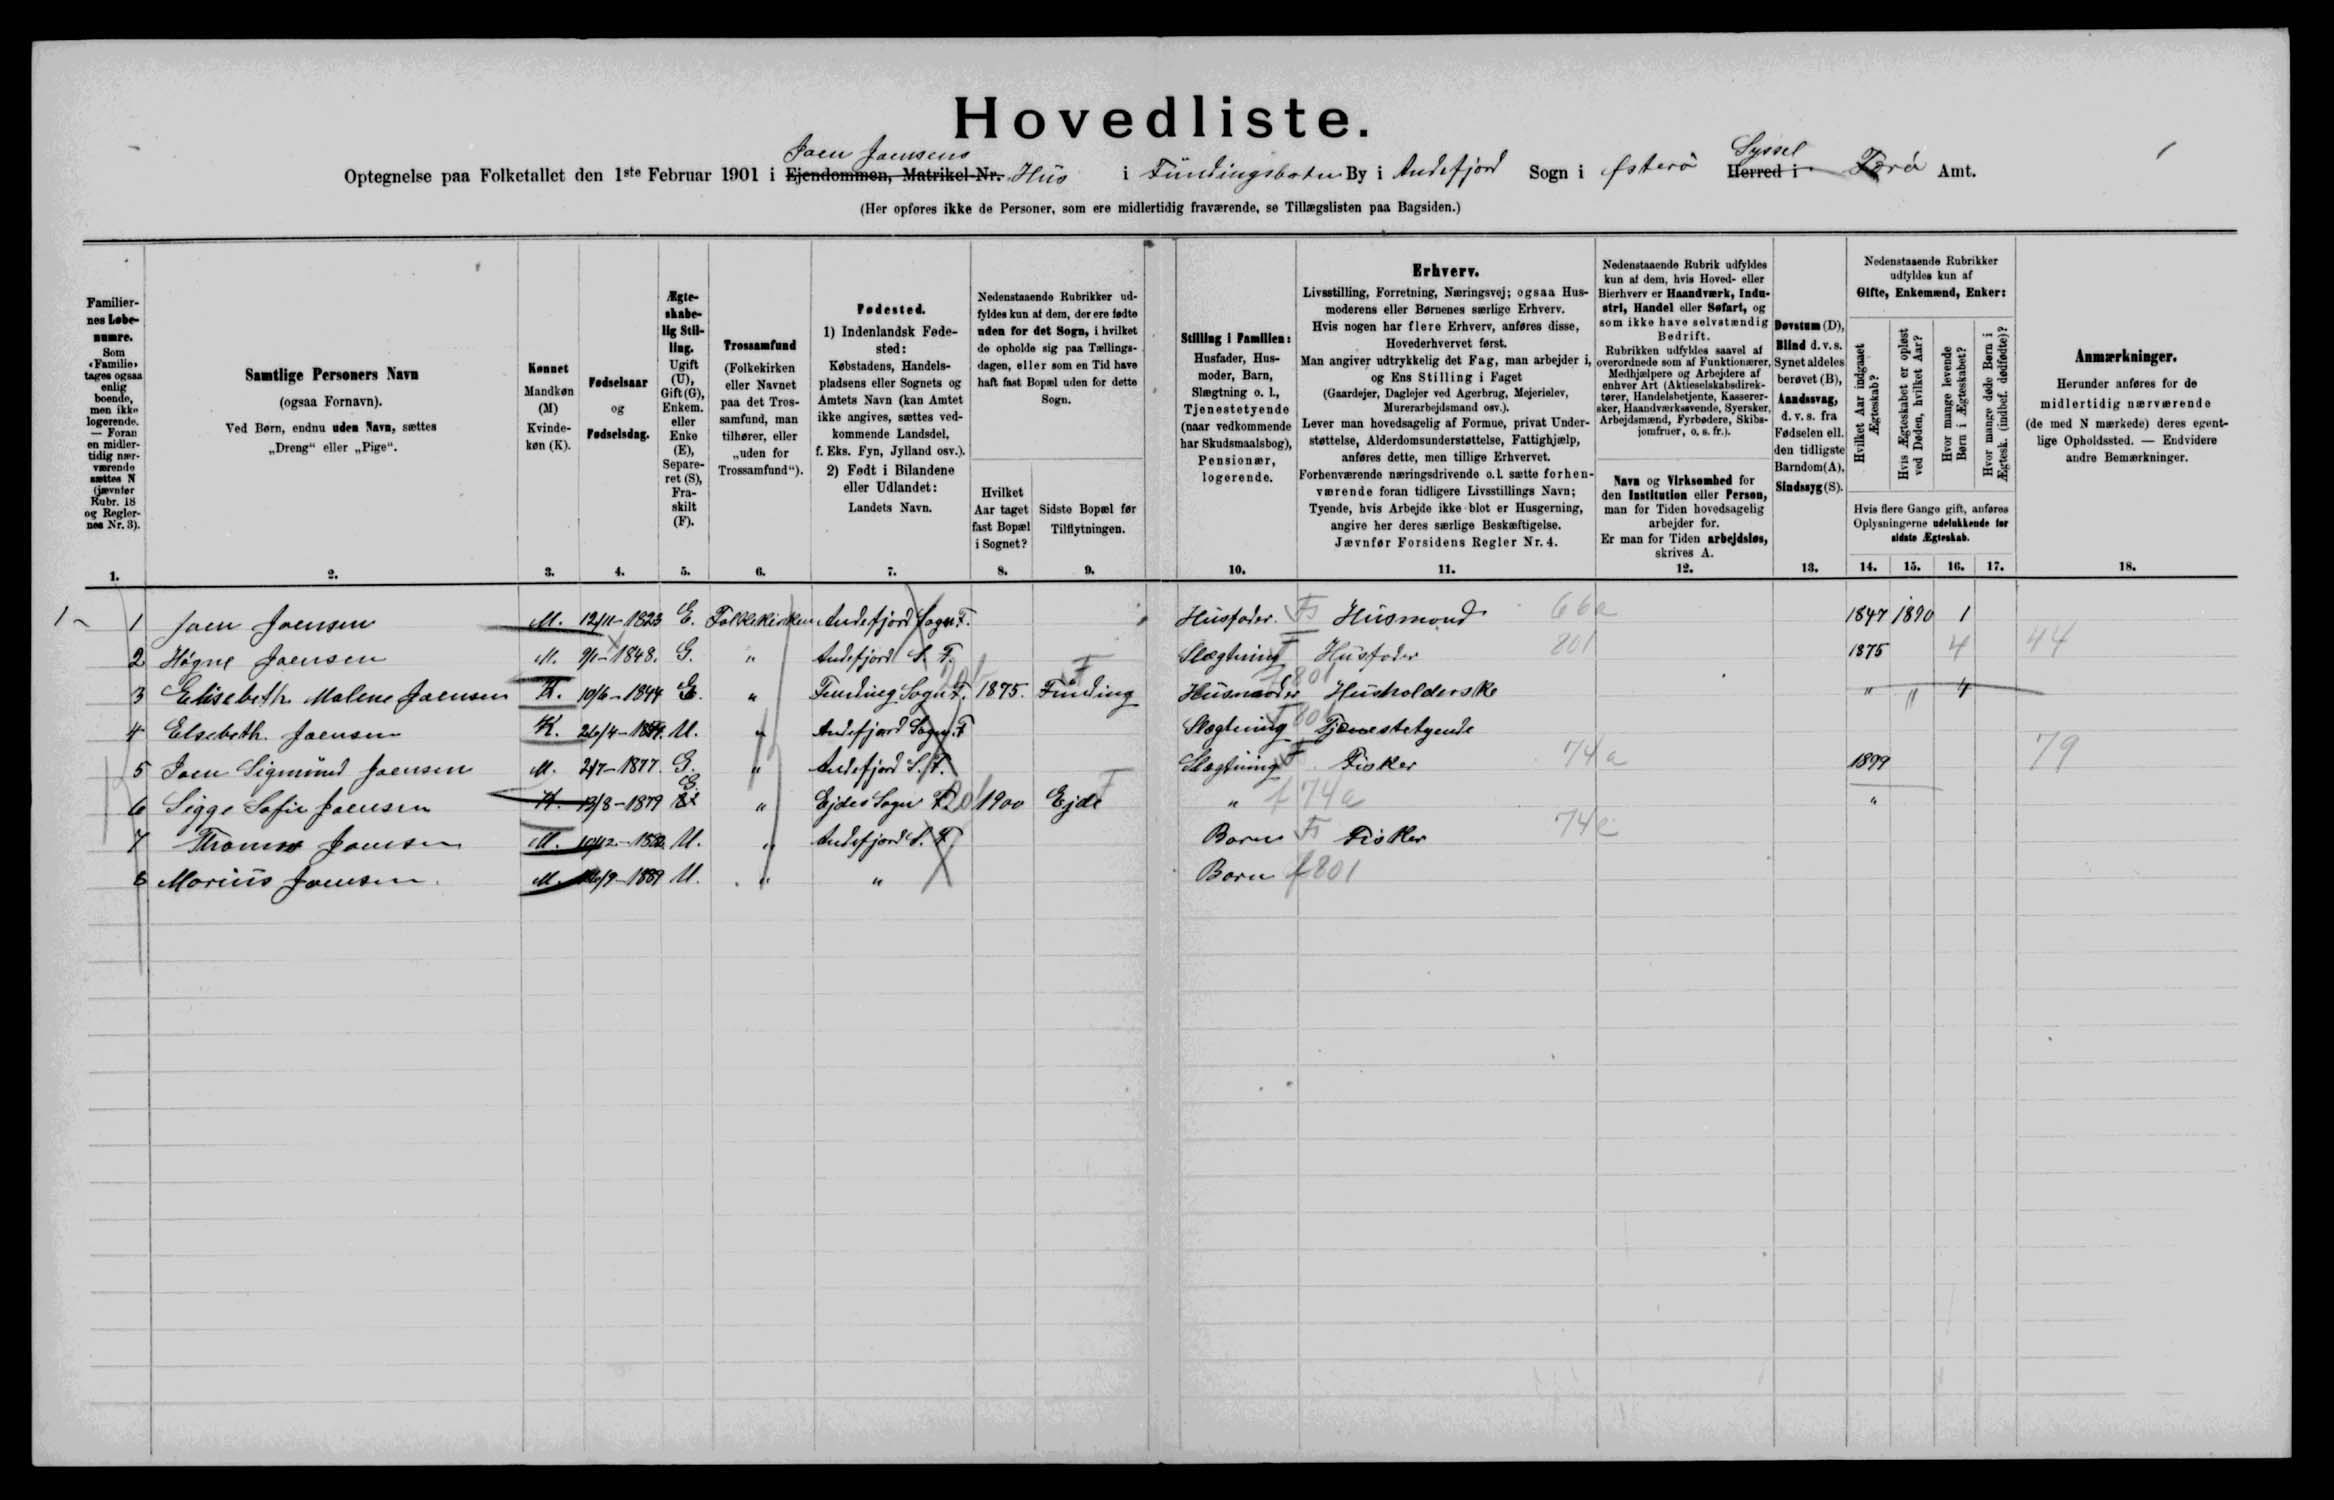 Hovedliste.
Joen Joensens
Syssel
Optegnelse paa Folketallet den 1ste Februar 1901 i Ejendommen, Matrikel-Nr. Hus i Fundingsboten By i Andefjord Sogn i Østerø Herred i Færø Amt.
(Her opføres ikke de Personer, som ere midlertidig fraværende, se Tillægslisten paa Bagsiden.)
Familiernes Løbenumre.
Som «Familie» tages ogsaa enlig boende, men ikke logerende. — Foran en midlertidig nærværende sættes N (jævnfør Rubr. 18 og Reglernes Nr. 3).
Samtlige Personers Navn
(ogsaa Fornavn).
Ved Børn, endnu uden Navn, sættes
„Dreng“ eller „Pige“.
Kønnet
Mandkøn (M)
Kvindekøn (K).
Fødselsaar
og
Fødselsdag.
Ægteskabelig Stilling.
Ugift (U), Gift (G), Enkem. eller Enke (E), Separeret (S), Fraskilt (F).
Trossamfund
(Folkekirken eller Navnet paa det Trossamfund, man tilhører, eller „uden for Trossamfund“).
Fødested.
1) Indenlandsk Fødested:
Købstadens, Handelspladsens eller Sognets og Amtets Navn (kan Amtet ikke angives, sættes vedkommende Landsdel, f. Eks. Fyn, Jylland osv.).
2) Født i Bilandene eller Udlandet:
Landets Navn.
Nedenstaaende Rubrikker udfyldes kun af dem, der ere fødte uden for det Sogn, i hvilket de opholde sig paa Tællingsdagen, eller som en Tid have haft fast Bopæl uden for dette Sogn.
Hvilket Aar taget fast Bopæl i Sognet?
Sidste Bopæl før Tilflytningen.
Stilling i Familien:
Husfader, Husmoder, Barn, Slægtning o. l., Tjenestetyende (naar vedkommende har Skudsmaalsbog), Pensionær, logerende.
Erhverv.
Livsstilling, Forretning, Næringsvej; ogsaa Husmoderens eller Børnenes særlige Erhverv.
Hvis nogen har flere Erhverv, anføres disse, Hovederhvervet først.
Man angiver udtrykkelig det Fag, man arbejder i, og Ens Stilling i Faget
(Gaardejer, Daglejer ved Agerbrug, Mejerielev, Murerarbejdsmand osv.).
Lever man hovedsagelig af Formue, privat Understøttelse, Alderdomsunderstøttelse, Fattighjælp, anføres dette, men tillige Erhvervet.
Forhenværende næringsdrivende o.l. sætte forhenværende foran tidligere Livsstillings Navn;
Tyende, hvis Arbejde ikke blot er Husgerning, angive her deres særlige Beskæftigelse.
Jævnfør Forsidens Regler Nr. 4.
Nedenstaaende Rubrik udfyldes kun af dem, hvis Hoved- eller Bierhverv er Haandværk, Industri, Handel eller Søfart, og som ikke have selvstændig Bedrift.
Rubrikken udfyldes saavel af overordnede som af Funktionærer, Medhjælpere og Arbejdere af enhver Art (Aktieselskabsdirektører, Handelsbetjente, Kasserersker, Haandværkssvende, Syersker, Arbejdsmænd, Fyrbødere, Skibsjomfruer, o. s. fr.).
Navn og Virksomhed for den Institution eller Person, man for Tiden hovedsagelig arbejder for.
Er man for Tiden arbejdsløs, skrives A.
Døvstum (D), Blind d. v. s. Synet aldeles berøvet (B), Aandssvag, d. v. s. fra Fødselen ell. den tidligste Barndom (A), Sindssyg (S).
Nedenstaaende Rubrikker udfyldes kun af
Gifte, Enkemænd, Enker:
Hvilket Aar indgaaet Ægteskab?
Hvis Ægteskabet er opløst ved Døden, hvilket Aar?
Hvor mange levende Børn i Ægteskabet?
Hvor mange døde Børn i Ægtesk. (indbef. dødfødte)?
Hvis flere Gange gift, anføres Oplysningerne udelukkende for sidste Ægteskab.
Anmærkninger.
Herunder anføres for de midlertidig nærværende (de med N mærkede) deres egentlige Opholdssted. — Endvidere andre Bemærkninger.
1. 2. 3. 4. 5. 6. 7. 8. 9. 10. 11. 12. 13. 14. 15. 16. 17. 18.
1 Joen Joensen M. 12/11-1823 E. Folkekirken Andefjord Sogn F. Husfader Husmand 66a 1847 1890 1
2 Høgne Joensen M. 9/1-1848. G. " Andefjord S. F. Slægtning Husfader 801 1875 4 44
3 Elisebeth Malene Joensen K. 10/6-1844 G. " Funding Sogn F. 1875. Funding Husmoder Husholderske " " 4
4 Elsebeth Joensen K. 26/4- U. " Andefjord Sogn F Slægtning f 801 Tjenestetyende
5 Joen Sigmund Joensen M. 2/7-1877. G. " Andefjord S. F. Slægtning Fisker 74a 1899 79
6 Sigge Sofie Joensen K. 13/8-1879 G. " Ejdes Sogn F. 1900 Ejde " f 74a "
7 Thomas Joensen M. U. " Andefjord S. F Barn Fisker 74a
8 Marius Joensen. M. 1889 U. " " Barn f 801